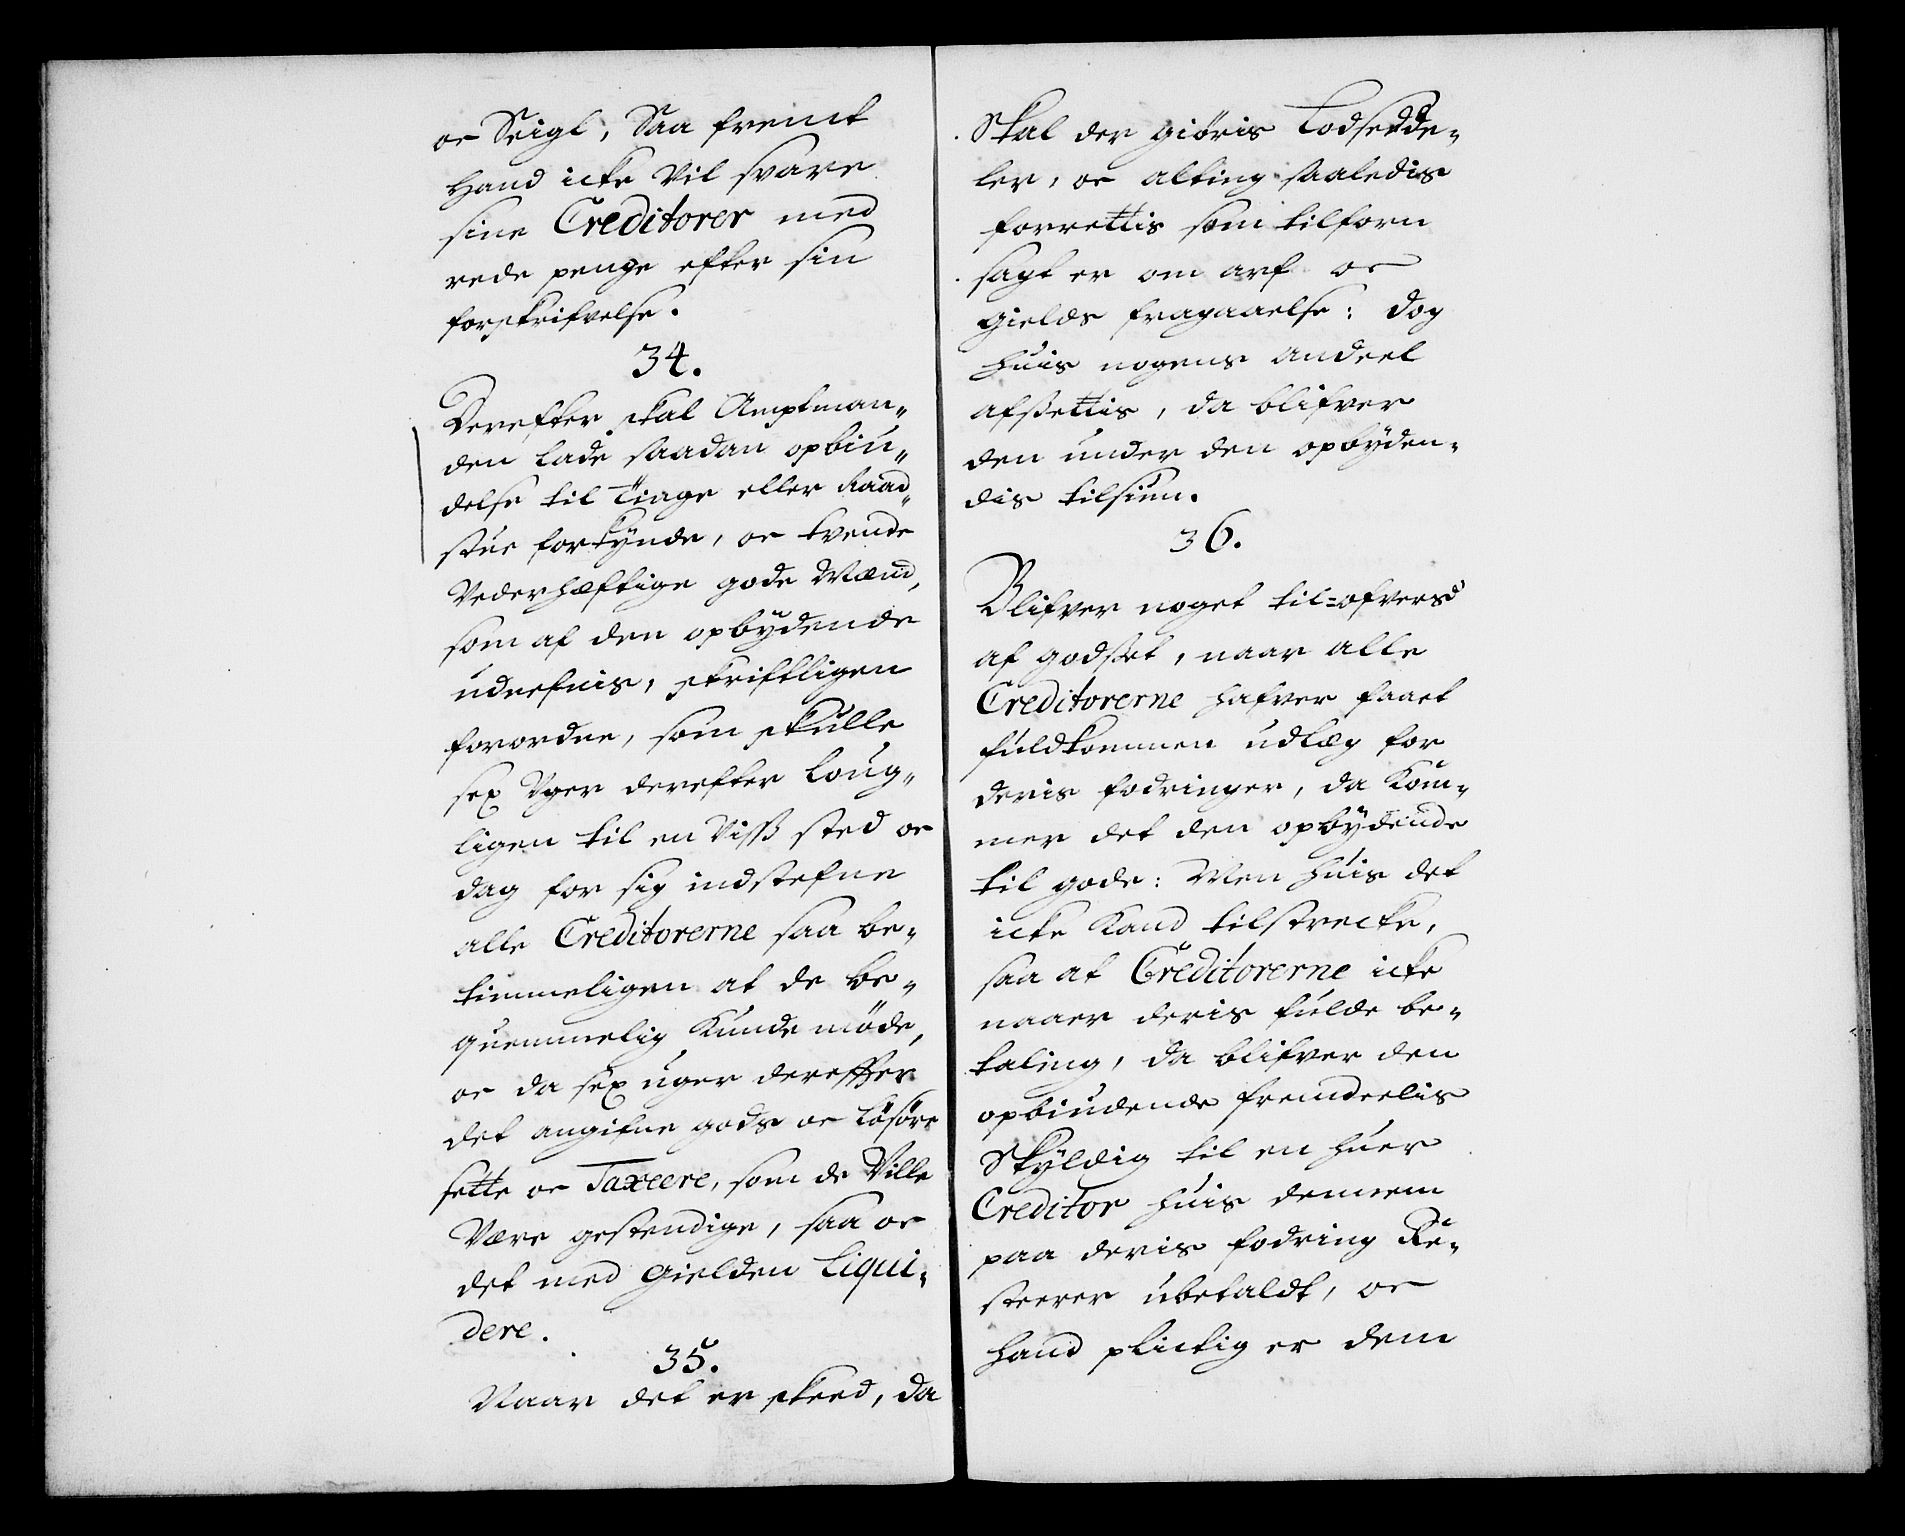 oc Seigl, Saa fremt
Hand icke Vil svare
sine Creditorer med
rede penge efter sin
forskrifvelse.
34.
Derefter skal Amptman„
den lade saadan opbiu„
delse til Tinge eller Raad„
stue forkynde, oc tvende
Vederhæftige gode Mænd,
som af den opbydende
udnefnis, skriftligen
forordne, som skulle
sex Uger derefter loug„
ligen til en Visß sted oc
dag for sig indstefne
alle Creditorerne saa be„
timmeligen at de be„
quemmelig Kunde møde,
oc da sex uger derefter
det angifne gods oc løsøre
sette oc Taxeere, som de Ville
Være gestendige, saa oc
det med Gielden Liqui„
dere.
35.
Naar det er skeed, da
Skal der giøris Lodsedde„
ler, oc alting saaledis
forrettis som tilforn
sagt er om arf oc
gields fragaaelse: dog
huis nogens andeel
afsettis, da blifver
den under den opbyden„
dis tilsiun.
36.
Blifver noget til=ofversd
af godset, naar alle
Creditorerne hafver faaet
fuldkommen udlæg for
deris fodringer, da Kom„
mer det den opbydende
til gode: Men huis det
icke Kand tilstrecke,
saa at Creditorerne icke
naaer deris fulde be„
taling, da blifver den
opbiudende fremdeelis
Skyldig til en huer
Creditor huis dennem
paa deris fodring Re„
steerer ubetaldt, oc
hand plictig er dem